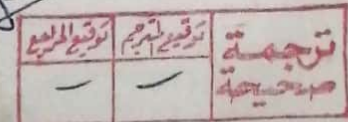 ترجمة
صحيحة
توقيع المترجم
توقيع المراجع